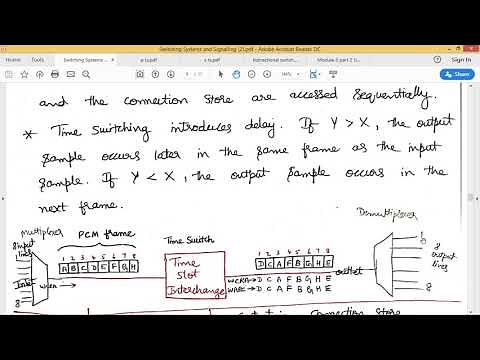 Switching Systems and Signalling (2).pdf - Adobe Acrobat Reader DC
Switching Systems
p ts.pdf
s ts.pdf
and the connection store are accessed sequentially.
* Time switching introduces delay. If Y > X, the output
sample occurs later in the same frame as the input
sample. If Y < X, the output sample occurs in the
next frame.
Multiplexer
PCM frame
Time Switch
Demultiplexer
8 input lines
1 2 3 4 5 6 7 8
A B C D E F G H
Time Slot Interchange
1 2 3 4 5 6 7 8
D C A F B G H E
D C A F B G H E
D C A F B G H E
outlet
1
8 output lines
8
8
Connection Store